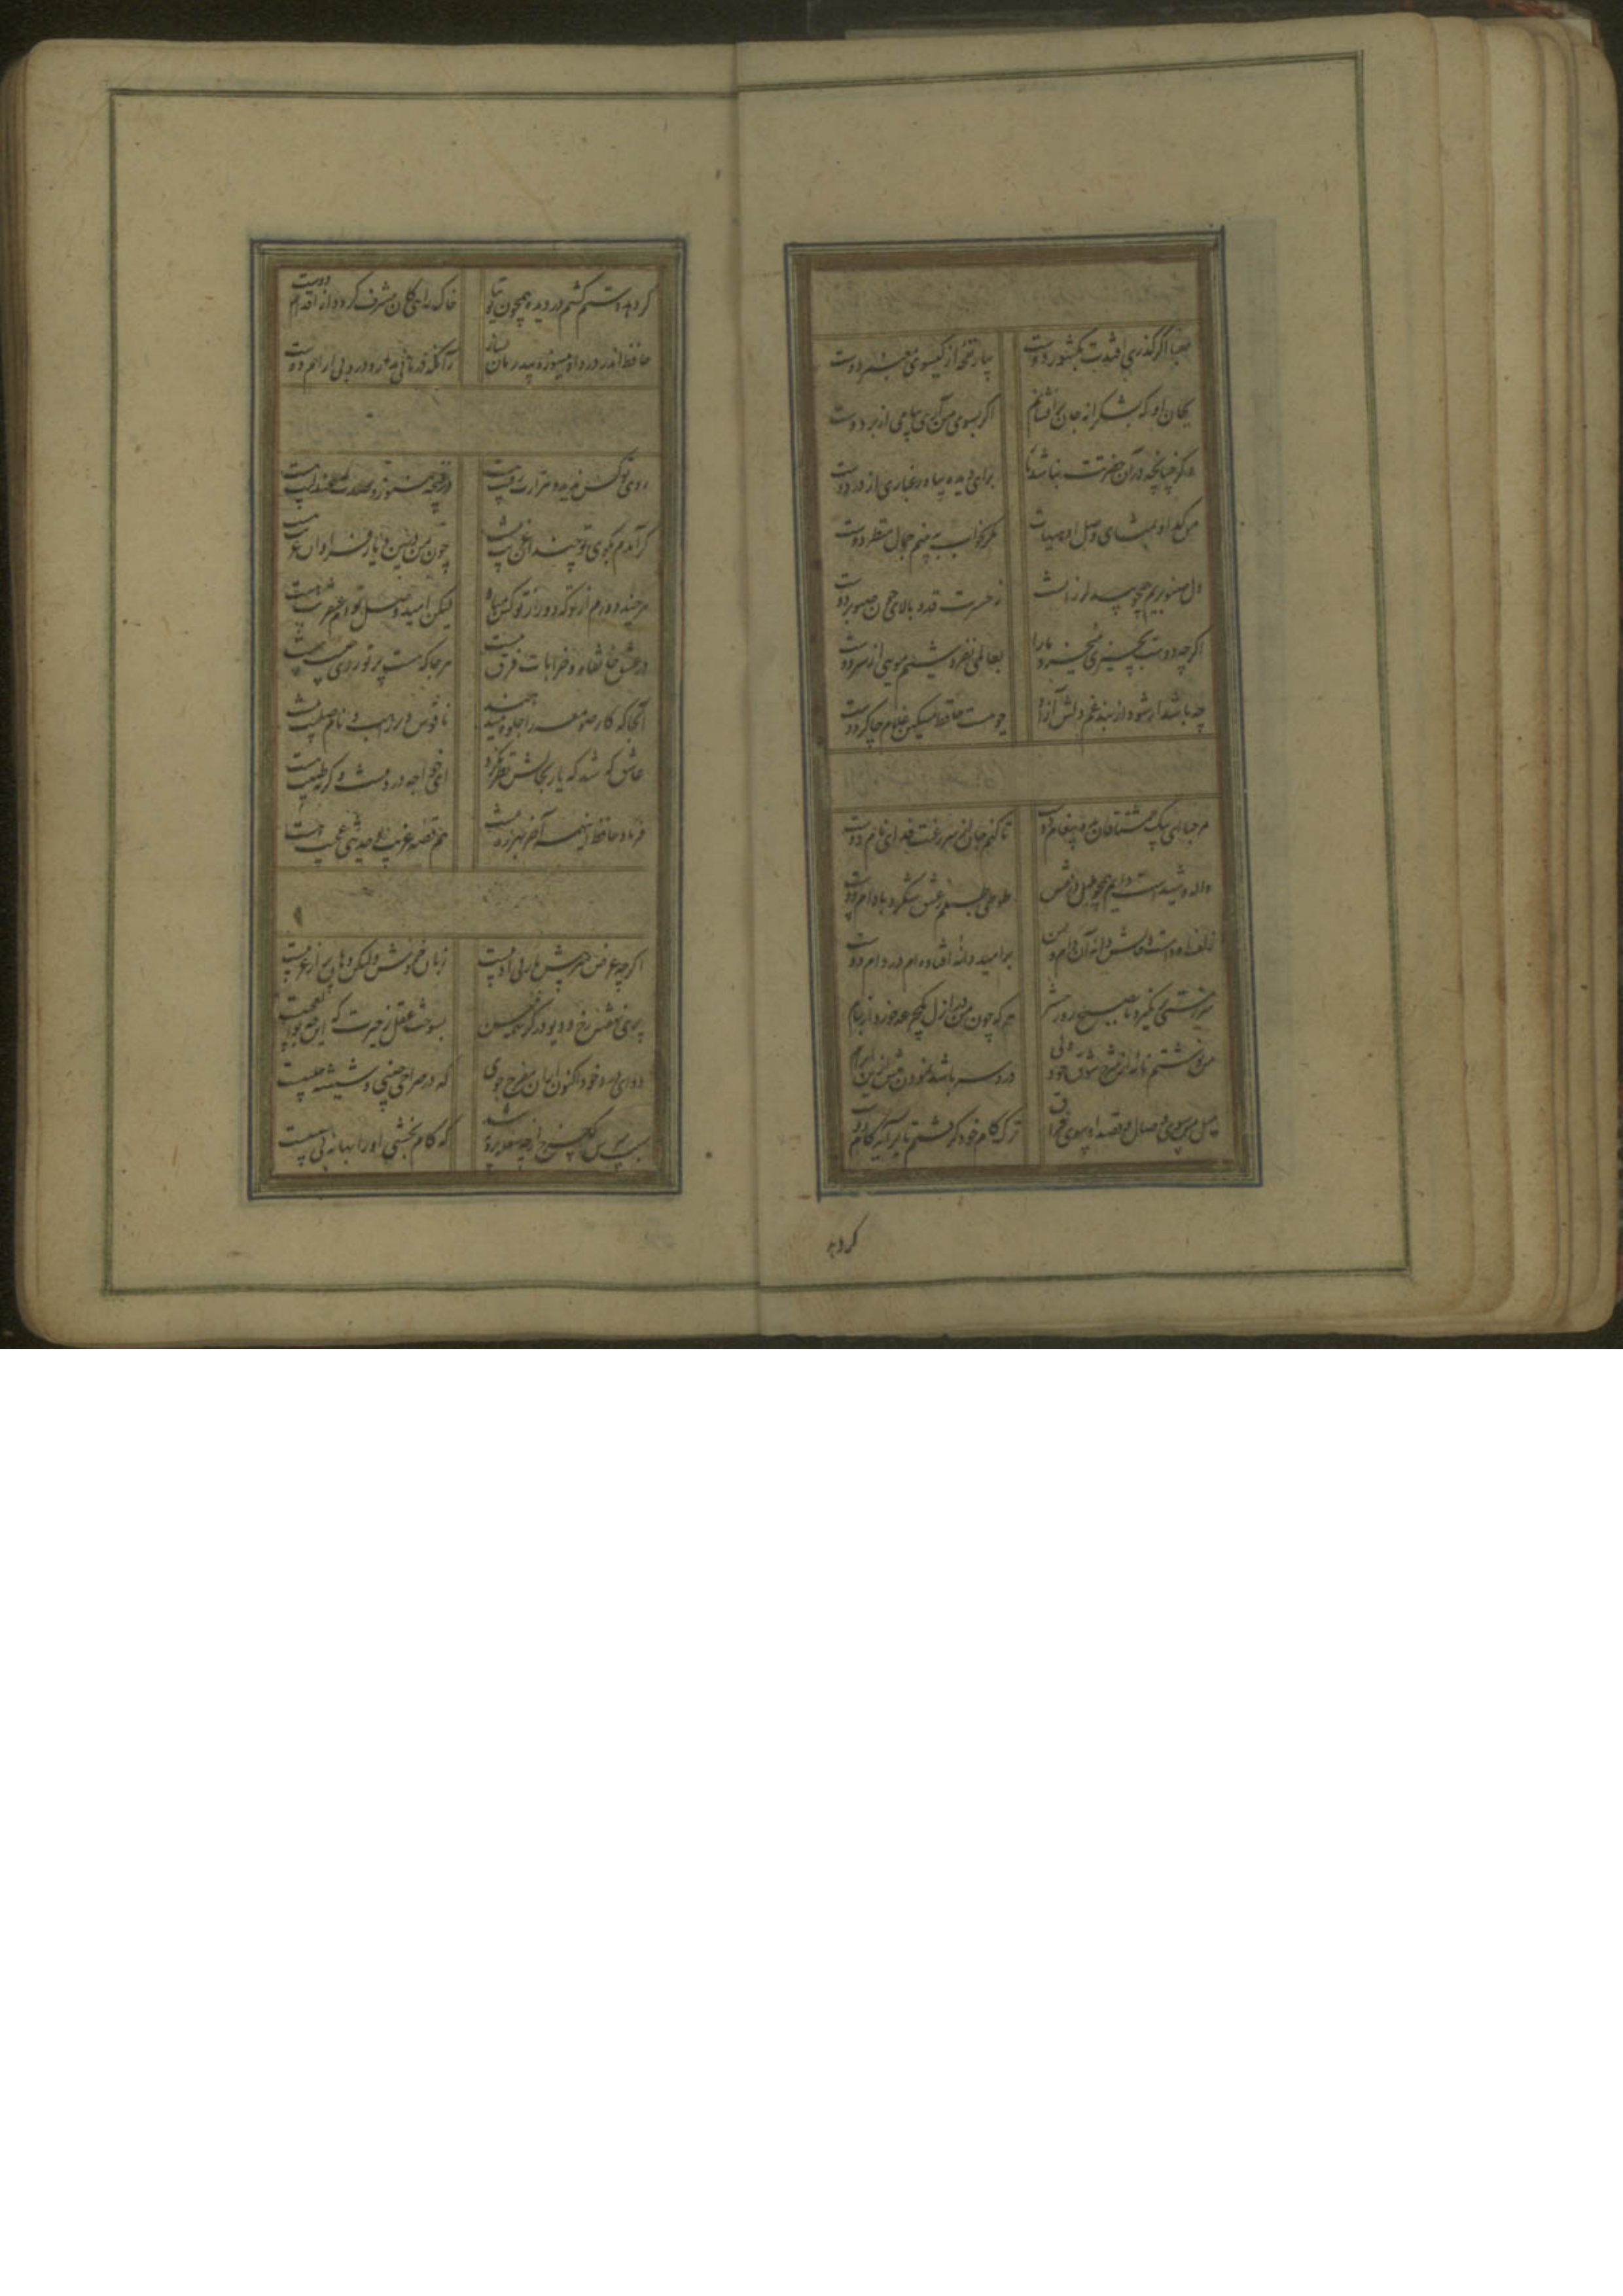 صبا اگر گذری افتدت بکشور دوست بیار نفحه از گیسوی معنبر دوست
بجان او که بشکرانه جان برافشانم اگر بسوی من آری پیامی از بر دوست
وگر چنانچه در آن حضرتت نباشد بار برای دیده بیاور غباری از در دوست
من گدا و تمنای وصل او هیهات مگر بخواب به بینم جمال منظر دوست
دل صنوبریم همچو بید لرزانست ز حسرت قد و بالای چون صنوبر دوست
اگر چه دوست بچیزی نمیخرد ما را بعالمی نفروشیم مویی از سر دوست
چه باشد ار شود از بند غم دلش آزاد چو هست حافظ مسکین غلام چاکر دوست
مرحبا ای پیک مشتاقان بده پیغام دوست تا کنم جان از سر رغبت فدای نام دوست
واله و شیداست دایم همچو بلبل در قفس طوطی طبعم ز عشق شکر و بادام دوست
زلف او دامست و خالش دانه آن دام و من بر امید دانه افتاده ام در دام دوست
سر ز مستی بر نگیرد تا بصبح روز حشر هر که چون من در ازل یکجرعه خورد از جام
من نوشتم نامه از شرح شوق خود ولی درد سر باشد نمودن بیش ازین ابرام
میل من سوی وصال و قصد او سوی فراق ترک کام خود گرفتم تا برآید کام دوست
گر دهد
گر دهد دستم کشم در دیده همچون توتیا خاک راهی کان مشرف گردد از اقدام دوست
حافظ اندر درد او میسوز و بیدرمان بساز زآنکه درمانی ندارد درد بی آرام دوست
روی تو کس ندید و هزارت رقیب هست در غنچه هنوز و صدت عندلیب هست
گر آمدم بکوی تو چندان غریب نیست چون من درین دیار فراوان غریب هست
هر چند دورم از تو که دور از تو کس مباد لیکن امید وصل توام عنقریب هست
در عشق خانقاه و خرابات فرق نیست هر جا که هست پرتو روی حبیب هست
آنجا که کار صومعه را جلوه میدهند ناقوس دیر راهب و نام صلیب هست
عاشق که شد که یار بحالش نظر نکرد ای خواجه درد نیست وگرنه طبیب هست
فریاد حافظ اینهمه آخر بهرزه نیست هم قصه غریب و حدیثی عجیب هست
اگر چه عرض هنر پیش یار بی ادبیست زبان خموش ولیکن دهان پر از عربیست
پری نهفته رخ و دیو در کرشمه حسن بسوخت عقل ز حیرت که این چه بوالعجبیست
دوای درد خود اکنون از آن مفرح جوی که در صراحی چینی و شیشه حلبیست
سبب مپرس که چرخ از چه سفله پرور شد که کام بخشی او را بهانه بی سببیست